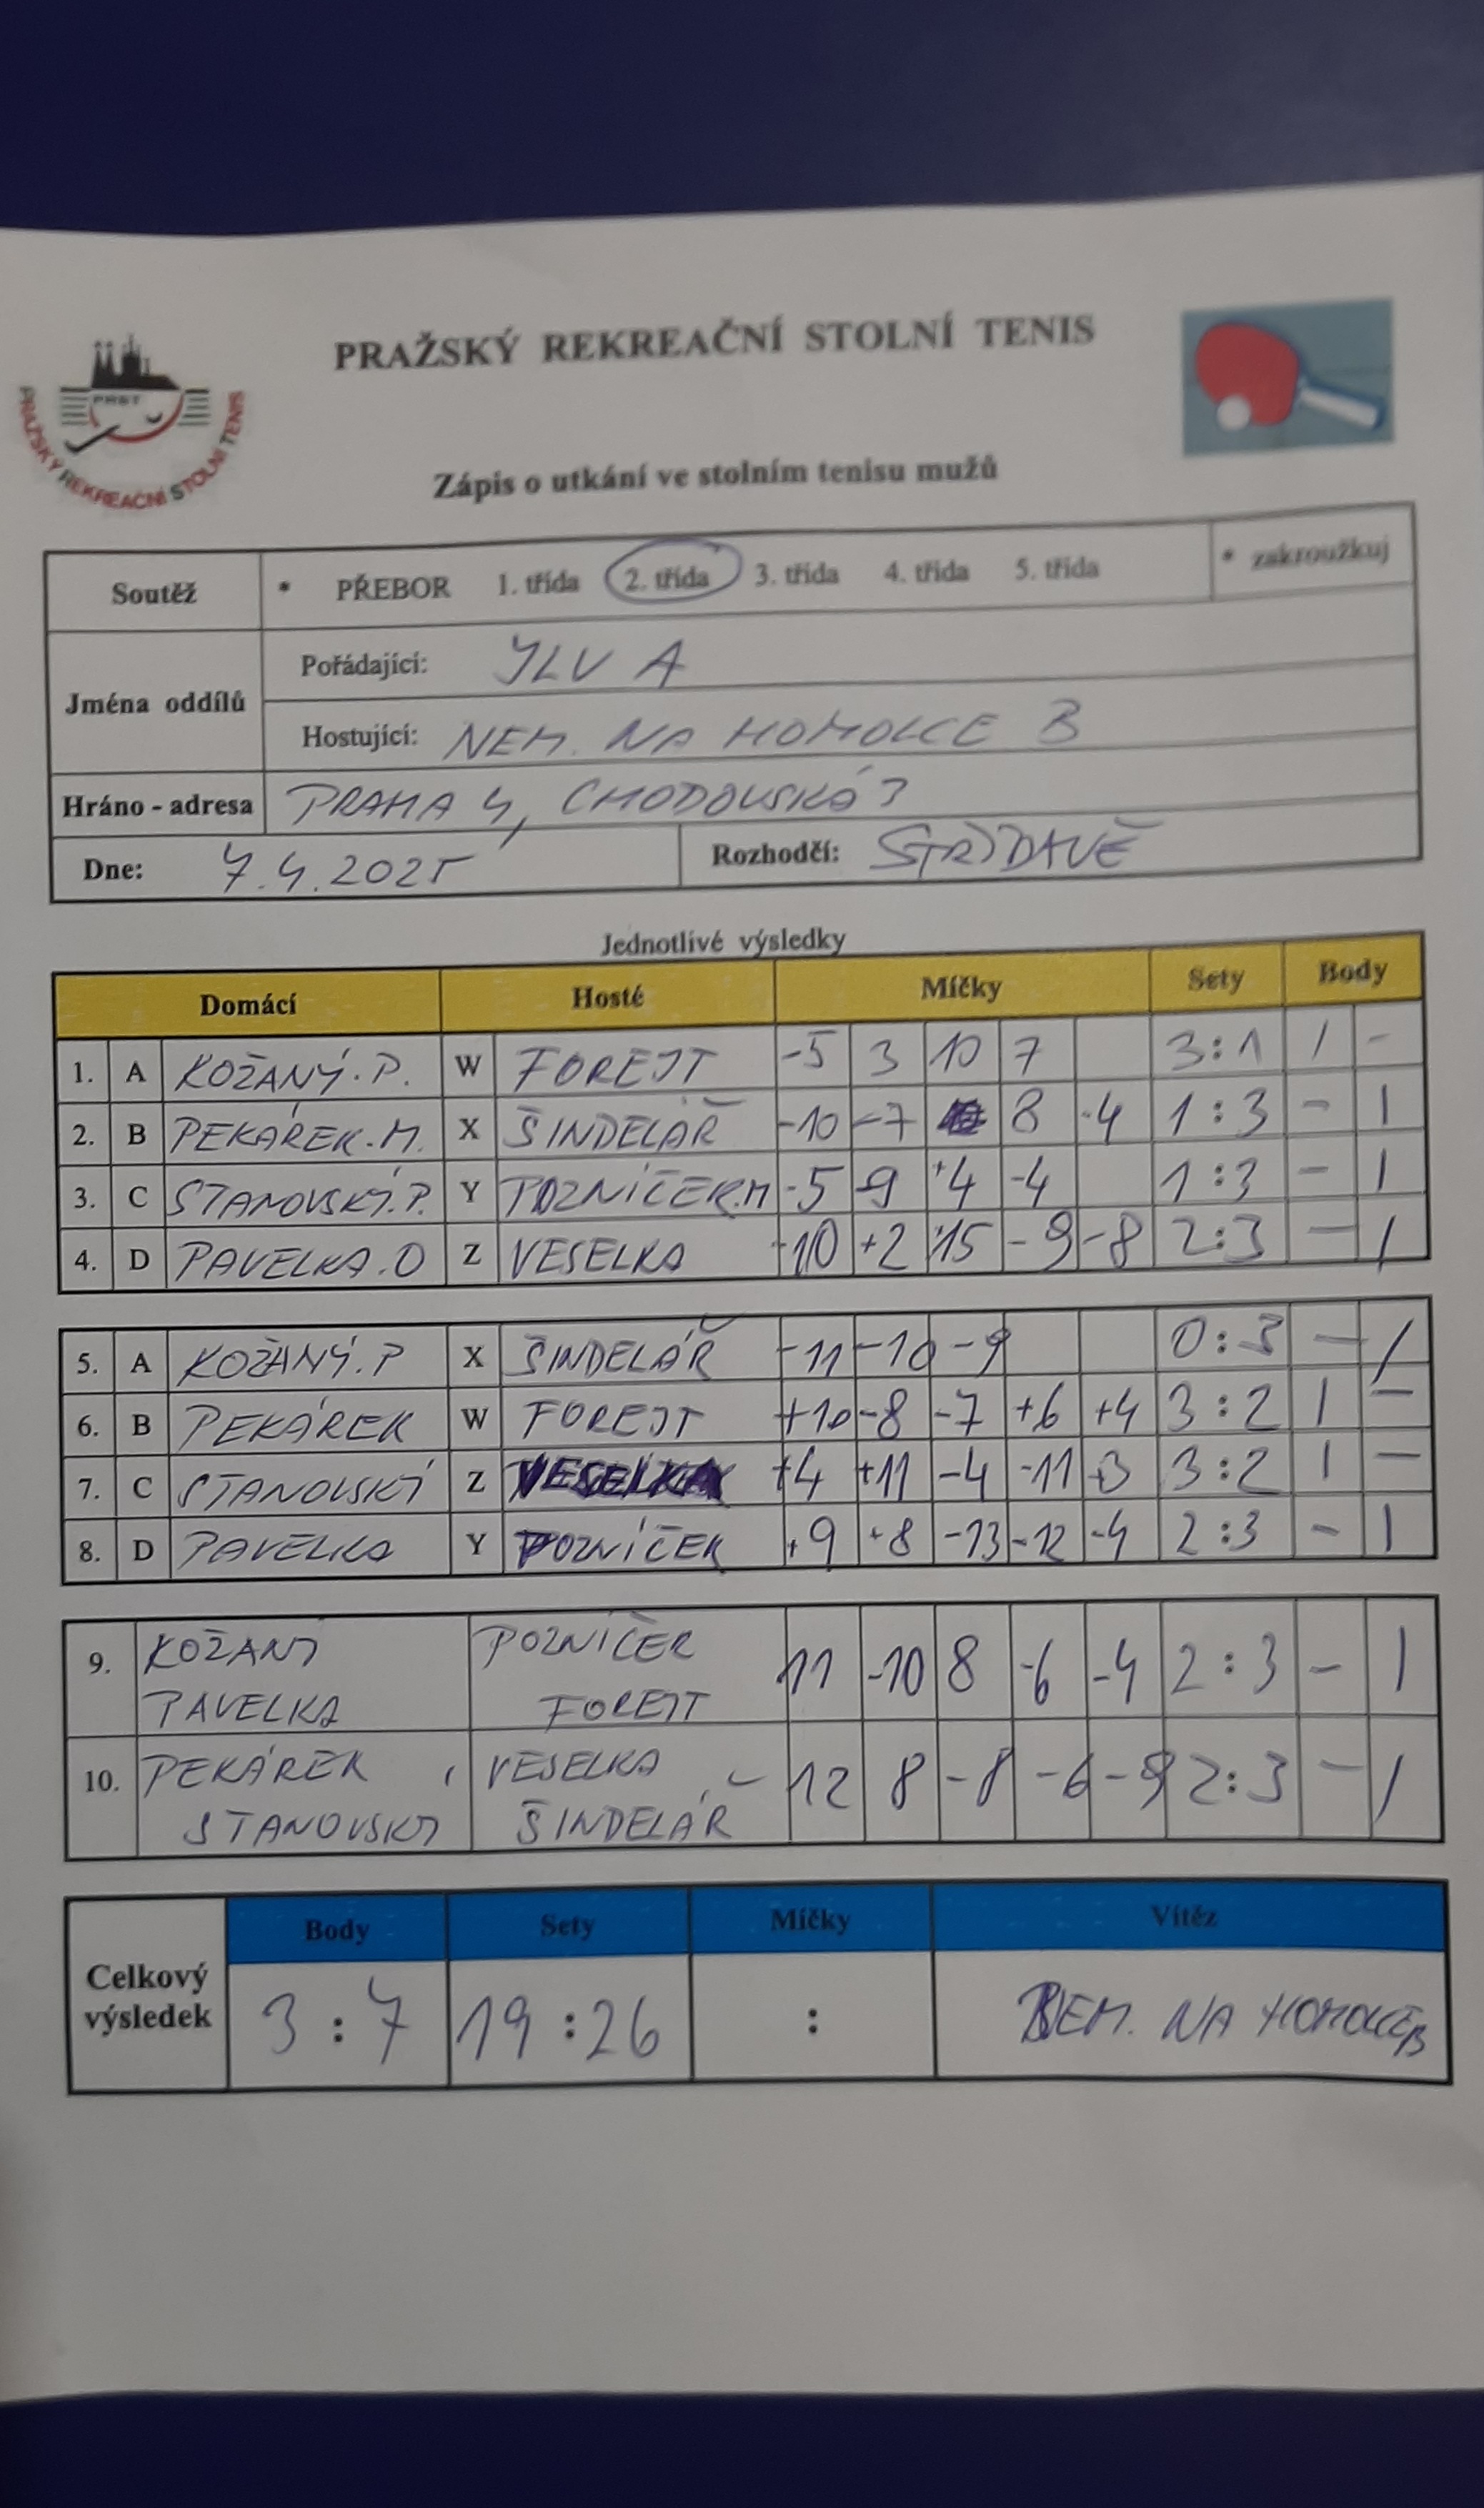 PRAŽSKÝ REKREAČNÍ STOLNÍ TENIS
PRST
PRAŽSKÝ REKREAČNÍ STOLNÍ TENIS
Zápis o utkání ve stolním tenisu mužů
Soutěž * PŘEBOR 1. třída 2. třída 3. třída 4. třída 5. třída * zakroužkuj
Jména oddílů
Pořádající: YLV A
Hostující: NEM. NA HOMOLCE B
Hráno - adresa PRAHA 4, CHODOVSKÁ 3
Dne: 7.4.2025 Rozhodčí: STŘÍDAVĚ
Jednotlivé výsledky
Domácí Hosté Míčky Sety Body
1. A KOŽANÝ.P. W FOREJT -5 3 10 7 3:1 1 -
2. B PEKÁREK.M. X ŠINDELÁŘ -10 -7 8 -4 1:3 - 1
3. C STANOVSKÝ.P. Y POZNÍČEK.M -5 -9 +4 -4 1:3 - 1
4. D PAVELKA.O Z VESELKA -10 +2 15 -9 -8 2:3 - 1
5. A KOŽANÝ.P X ŠINDELÁŘ -11 -10 -9 0:3 - 1
6. B PEKÁREK W FOREJT +10 -8 -7 +6 +4 3:2 1 -
7. C STANOVSKÝ Z VESELKA +4 +11 -4 -11 +3 3:2 1 -
8. D PAVELKA Y POZNÍČEK +9 +8 -13 -12 -4 2:3 - 1
9. KOŽANÝ POZNÍČEK 11 -10 8 -6 -4 2:3 - 1
PAVELKA FOREJT
10. PEKÁREK VESELKA 12 8 -8 -6 -9 2:3 - 1
STANOVSKÝ ŠINDELÁŘ
Celkový výsledek
Body Sety Míčky Vítěz
3:7 19:26 : NEM. NA HOMOLCE B